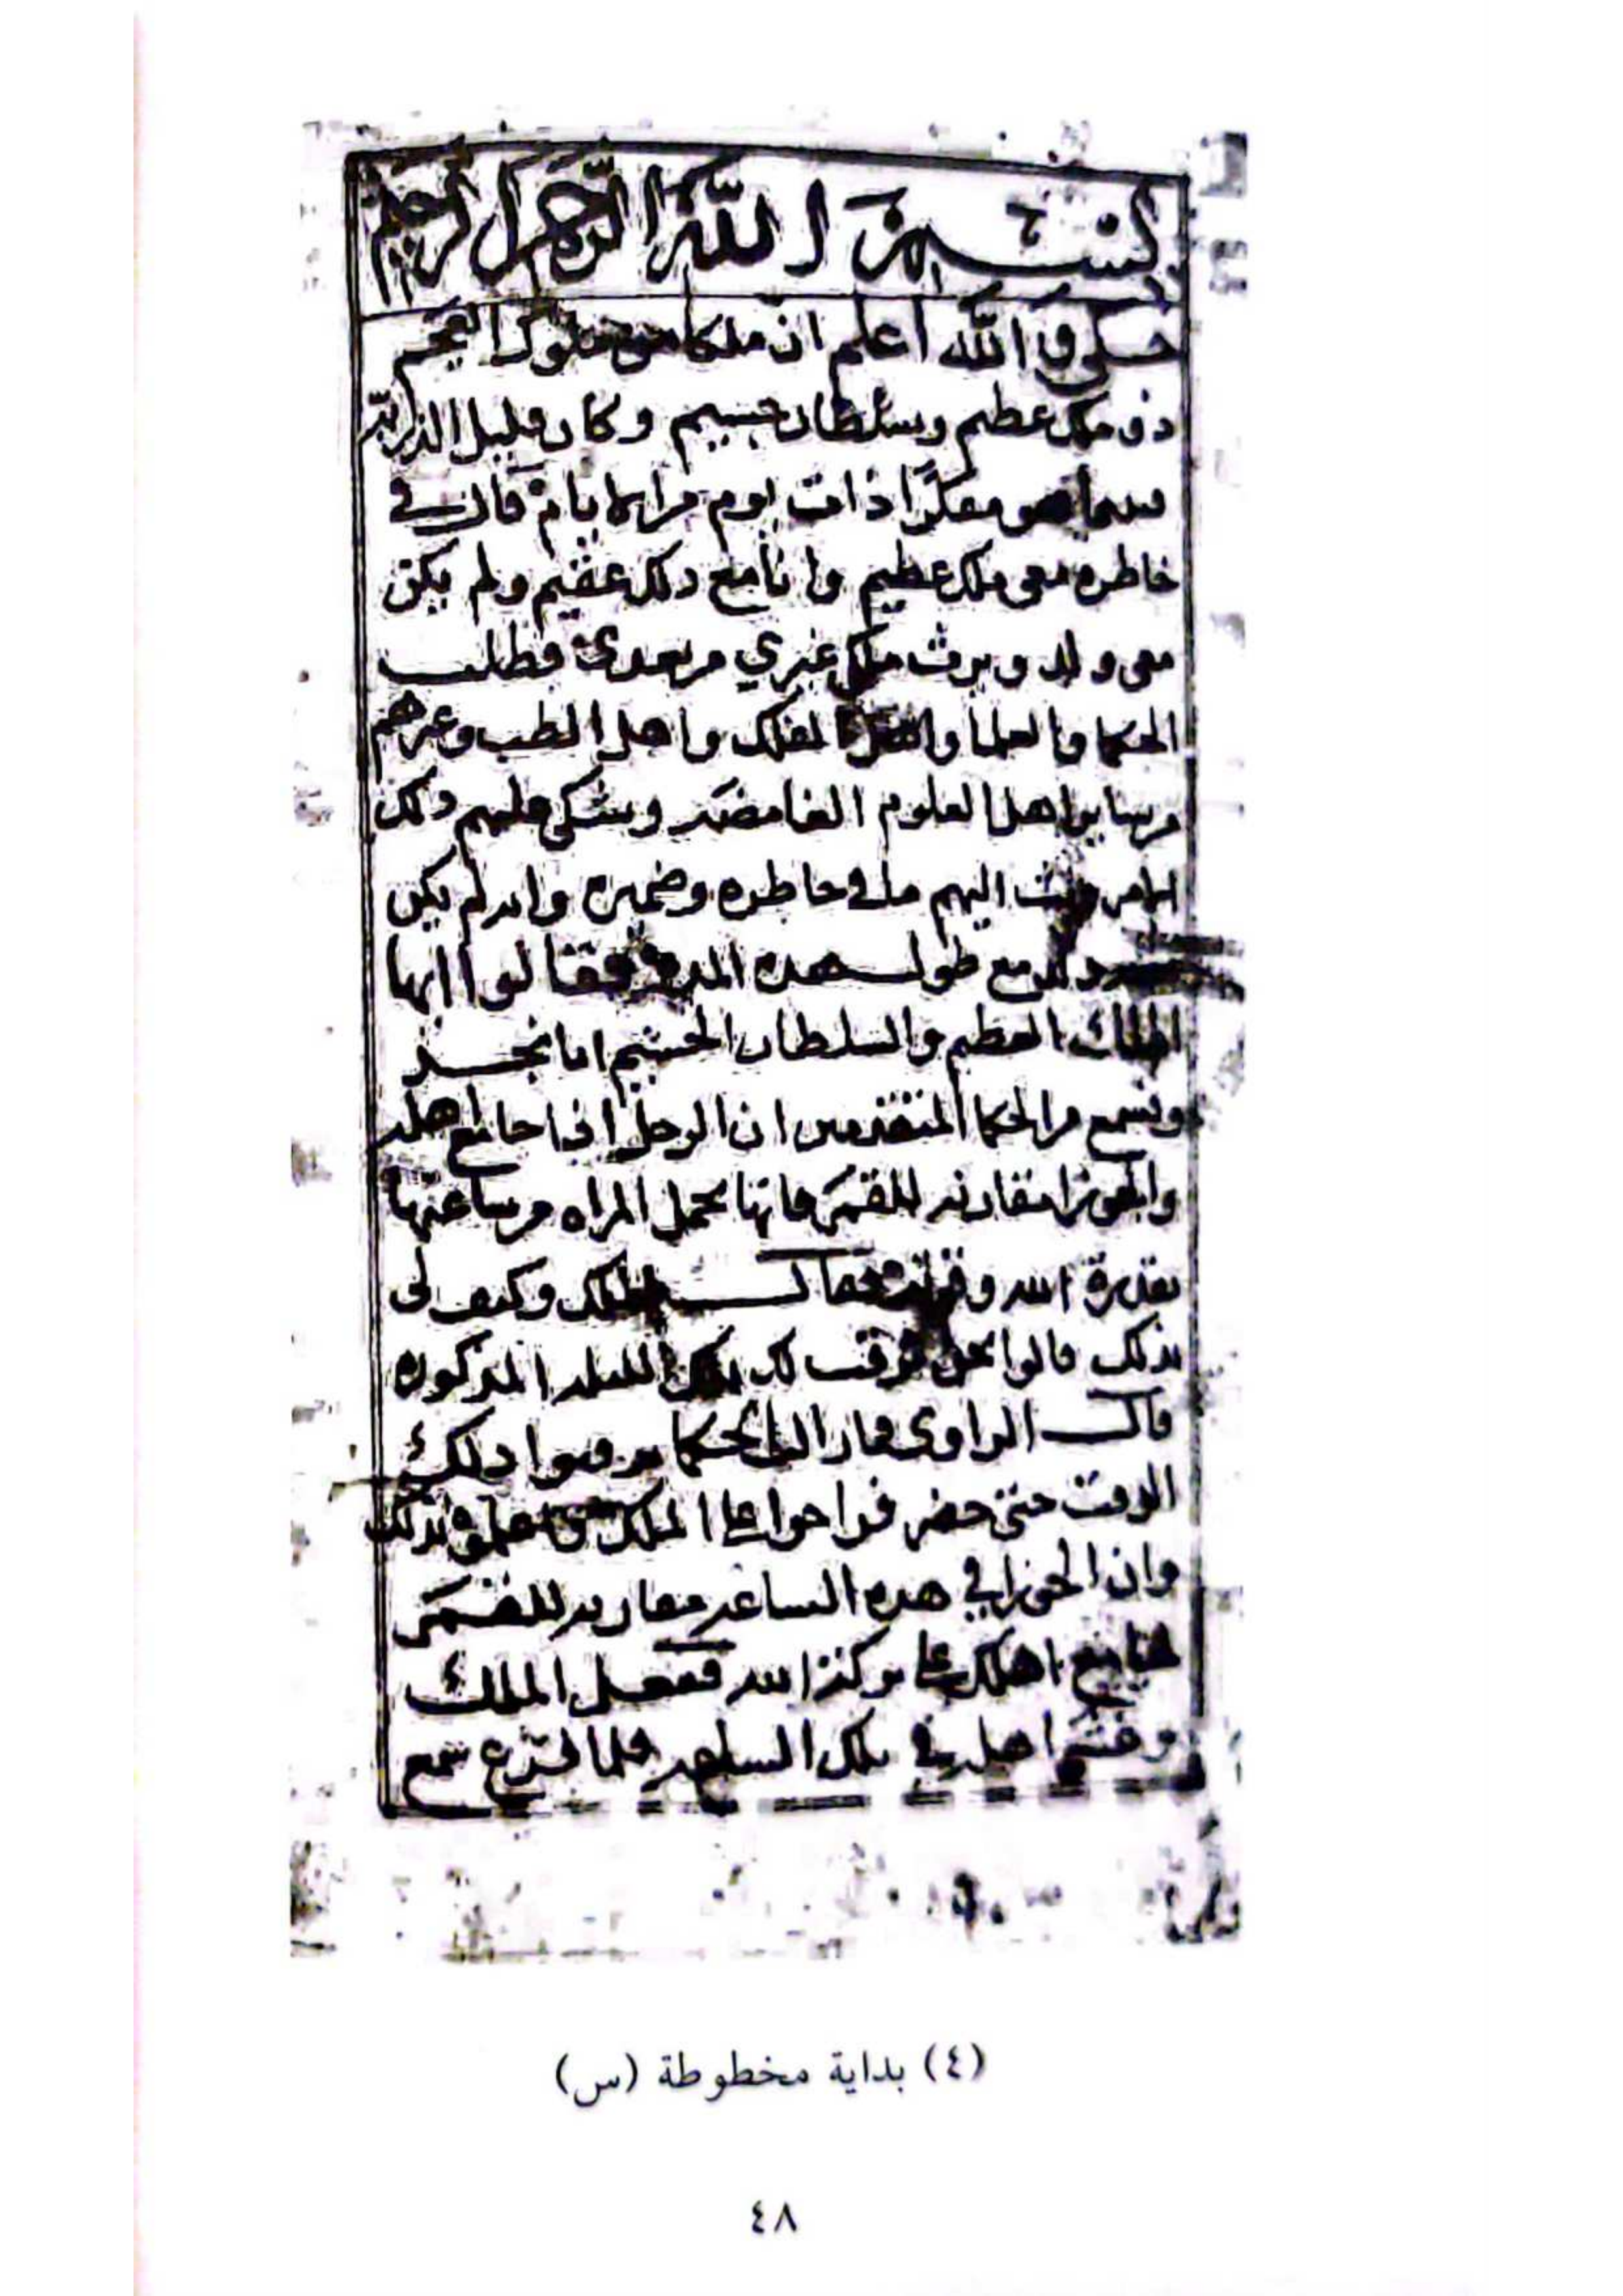 بسم الله الرحمن الرحيم
حكى والله اعلم ان ملكا من ملوك العجم
ذو ملك عظيم وسلطان جسيم وكان قليل الذريه
فبينما هو مفكرا ذات يوم من الايام قال في
خاطره معى ملك عظيم وانا مع ذلك عقيم ولم يكن
معى ولد ويرث ملكي غيري من بعدى فطلب
الحكما والعلما واهل الفلك واهل الطب وغيرهم
من ساير اهل العلوم الغامضه وشكى عليهم ذلك
الامر وبث اليهم ما في خاطره وضميره وانه لم يكن
ذلك مع طول هده المده فقالوا ايها
الملك العظيم والسلطان الجسيم انا نجد
ونسمع من الحكما المتقدمين ان الرجل اذا جامع اهله
والجوزا مقارنه للقمر فانها تحمل المراه من ساعتها
بقدرة الله وقوته فقال الملك وكيف لى
بذلك قالوا نحن نرقب لك تلك الليله المذكوره
قال الراوى فما زالوا الحكما يرقبوا ذلك
الوقت حتى حضر فراحوا على الملك بذلك
وان الجوزا في هده الساعه مقارنه للقمر
فجامع اهلك على بركة الله ففعل الملك
اهله في تلك الساعه فلما فرغ سمع
(٤) بداية مخطوطة (س)
٤٨